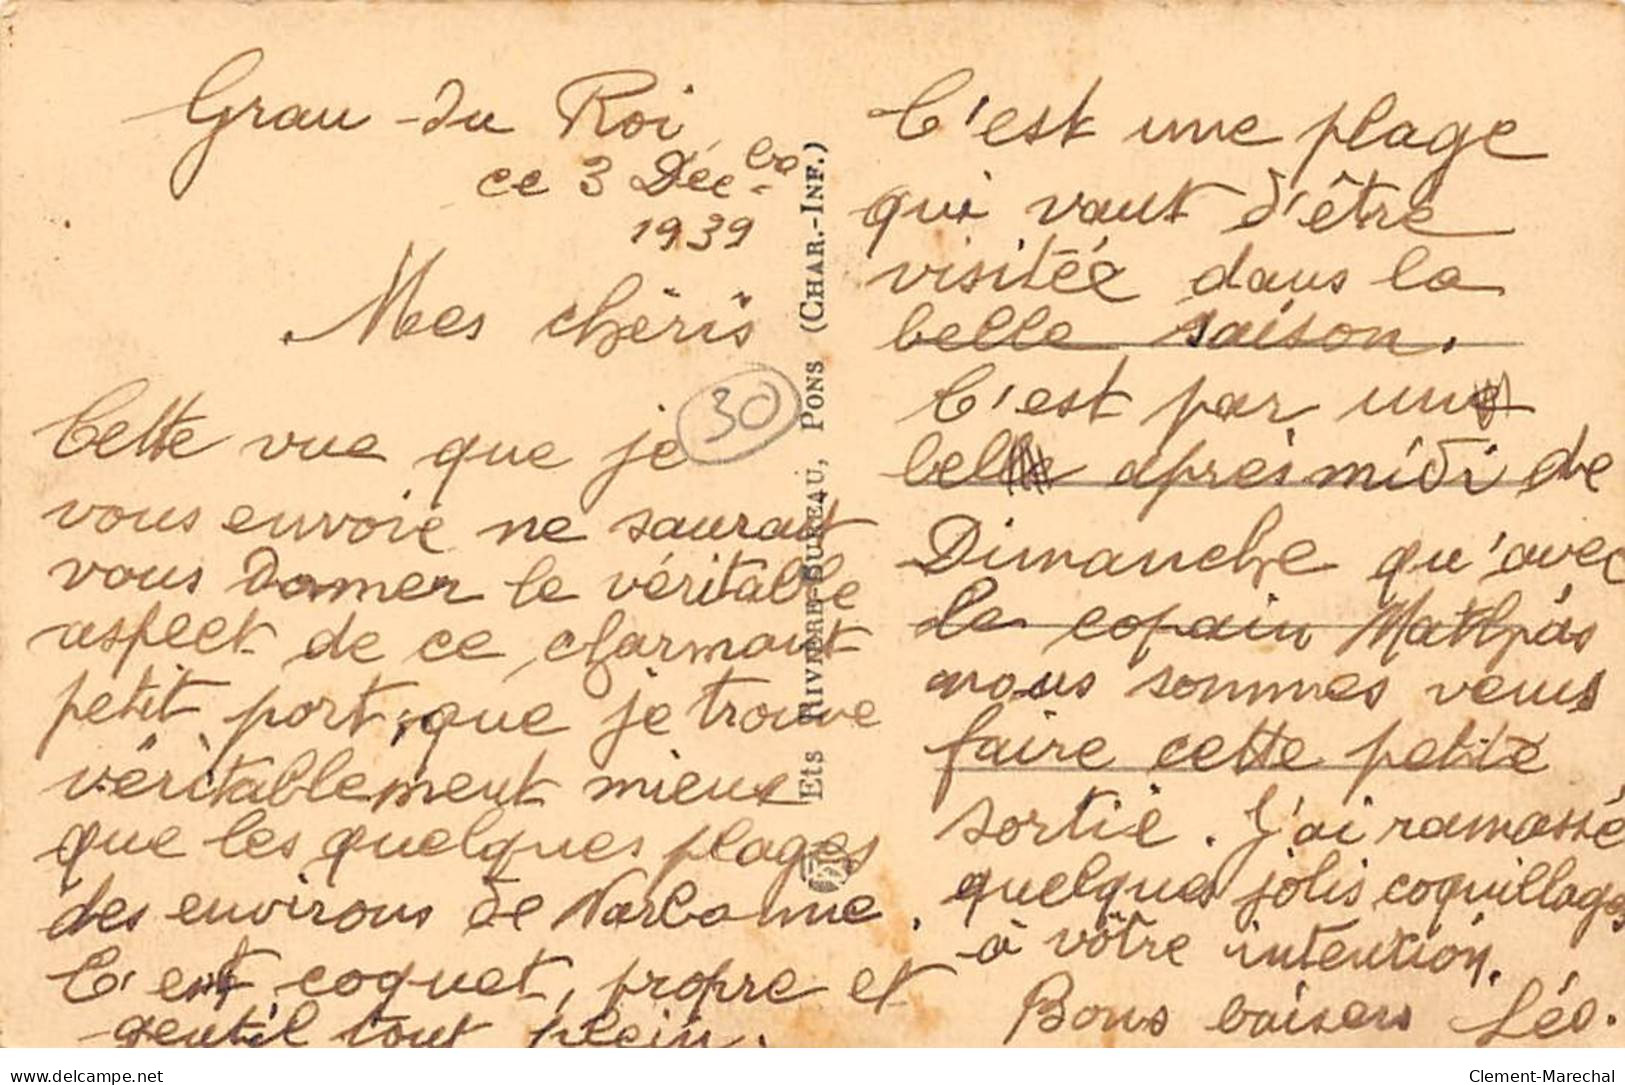 Grau-du Roi
ce 3 Déc bre
1939
Mes chéris
30
Cette vue que je
vous envoie ne saurait
vous donner le véritable
aspect de ce charmant
petit port, que je trouve
véritablement mieux
que les quelques plages
des environs de Narbonne.
C'est coquet, propre et
gentil tout plein.
Ets RIVIERE-BUREAU, PONS (CHAR.-INF.)
C'est une plage
qui vaut d'être
visitée dans la
belle saison.
C'est par un
bel après midi de
Dimanche qu'avec
le copain Mathpás
nous sommes venus
faire cette petite
sortie. J'ai ramassé
quelques jolis coquillages
à vôtre intention.
Bons baisers Léo.
www.delcampe.net
Clement-Marechal